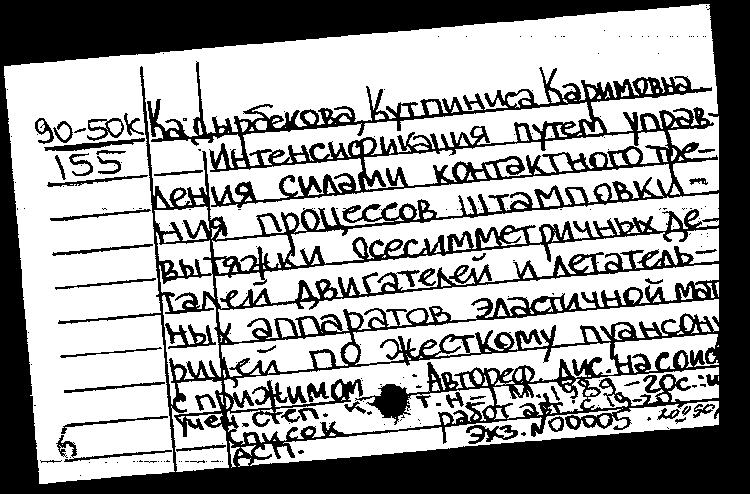 90-50К Кадырбекова, Кутпиниса Каримовна
155 Интенсификация путем управ-
ления силами контактного тре-
ния процессов штамповки-
вытяжки осесимметричных де-
талей двигателей и летатель-
ных аппаратов эластичной мат
рицей по жесткому пуансону
с прижимом : Автореф. дис. на соис
учен. степ. к. т.н.- М., 1989.-20с.:и
список работ авт. с.19-20.
6 ДСП. Экз. N00005